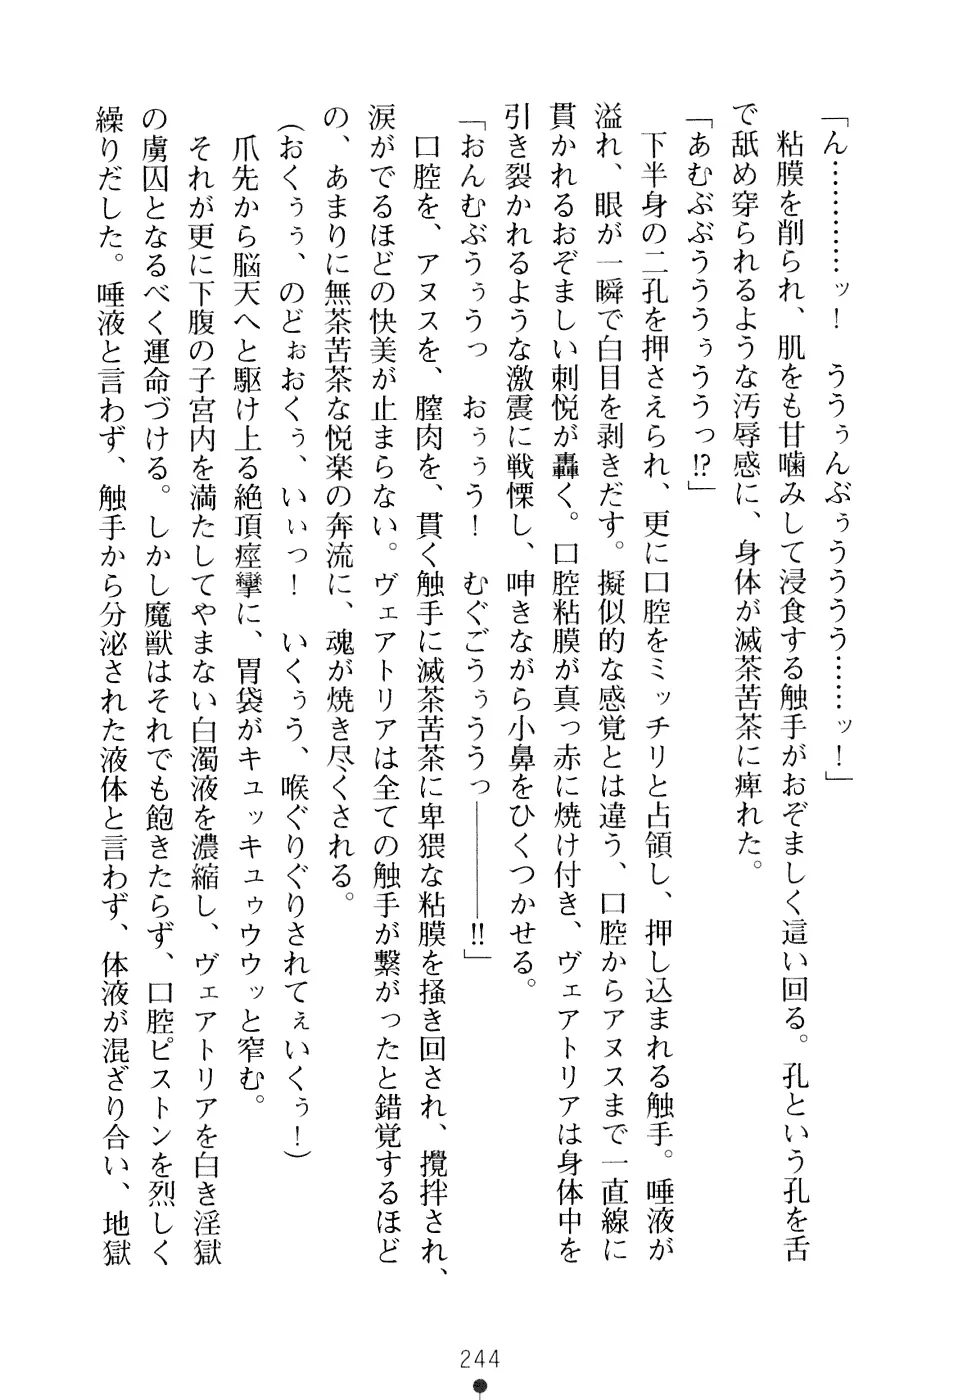 「ん…………ッ！　ううぅんぶぅうううう……ッ！」
　粘膜を削られ、肌をも甘噛みして浸食する触手がおぞましく這い回る。孔という孔を舌
で舐め穿られるような汚辱感に、身体が滅茶苦茶に痺れた。
「あむぶぶうううぅううっ!?」
　下半身の二孔を押さえられ、更に口腔をミッチリと占領し、押し込まれる触手。唾液が
溢れ、眼が一瞬で白目を剥きだす。擬似的な感覚とは違う、口腔からアヌスまで一直線に
貫かれるおぞましい刺悦が轟く。口腔粘膜が真っ赤に焼け付き、ヴェアトリアは身体中を
引き裂かれるような激震に戦慄し、呻きながら小鼻をひくつかせる。
「おんむぶうぅうっ　おぅぅう！　むぐごうぅううっ――――!!」
　口腔を、アヌスを、膣肉を、貫く触手に滅茶苦茶に卑猥な粘膜を掻き回され、攪拌され、
涙がでるほどの快美が止まらない。ヴェアトリアは全ての触手が繋がったと錯覚するほど
の、あまりに無茶苦茶な悦楽の奔流に、魂が焼き尽くされる。
（おくぅぅ、のどぉおくぅ、いぃっ！　いくぅう、喉ぐりぐりされてぇいくぅ！）
　爪先から脳天へと駆け上る絶頂痙攣に、胃袋がキュッキュゥウウッと窄む。
　それが更に下腹の子宮内を満たしてやまない白濁液を濃縮し、ヴェアトリアを白き淫獄
の虜囚となるべく運命づける。しかし魔獣はそれでも飽きたらず、口腔ピストンを烈しく
繰りだした。唾液と言わず、触手から分泌された液体と言わず、体液が混ざり合い、地獄
244